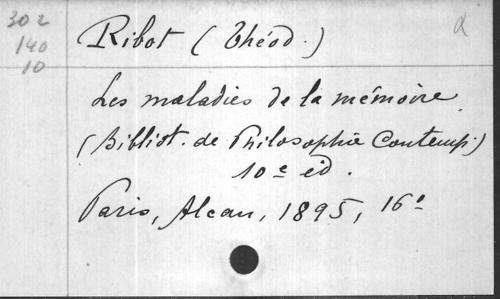 302
140
10
Ribot (Théod.)
Les maladies de la mémoire
(Bibliot. de Philosophie Contemp.)
10e éd.
Paris, Alcan, 1895, 16°